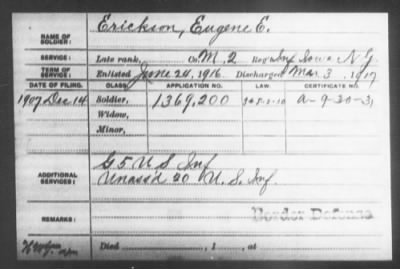 NAME OF SOLDIER: Erickson, Eugene E.
SERVICE: Late rank, Co. M, 2 Reg't Inf Iowa N G
TERM OF SERVICE: Enlisted June 24, 1916. Discharged Mar. 3, 1917
DATE OF FILING. CLASS. APPLICATION NO. CERTIFICATE NO.
1907 Dec. 14 Soldier, 1,369,200 A-9-30-31
Widow,
Minor,
ADDITIONAL SERVICES: G 5 U S Inf
Unass'd 20 U. S. Inf.
REMARKS: Border Defense
Died , 1 , at